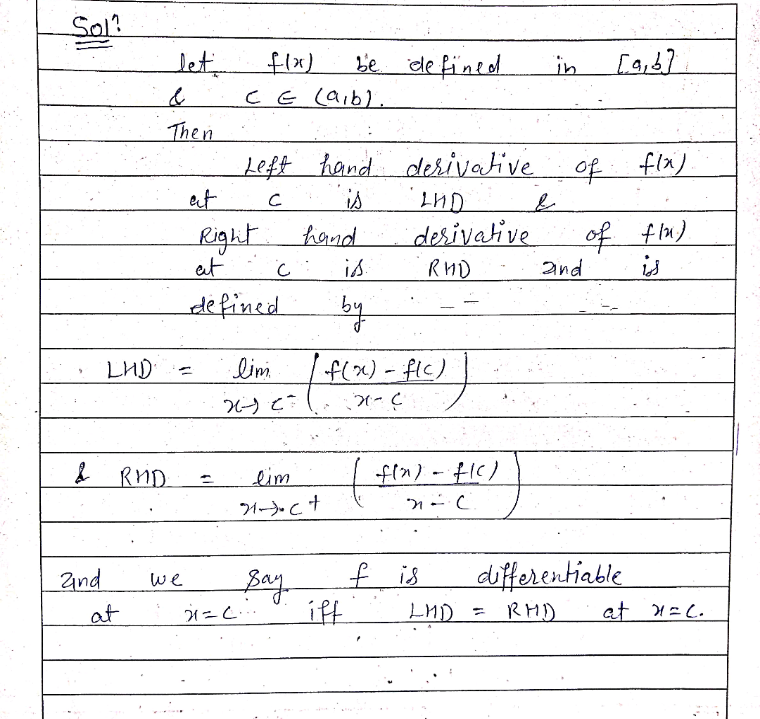 Solⁿ
let f(x) be defined in [a,b]
& c ∈ (a,b).
Then
Left hand derivative of f(x)
at c is LHD &
Right hand derivative of f(x)
at c is RHD and is
defined by --
LHD = lim x→c⁻ ( f(x) - f(c) / x - c )
& RHD = lim x→c+ ( f(x) - f(c) / x - c )
and we say f is differentiable
at x=c iff LHD = RHD at x=c.